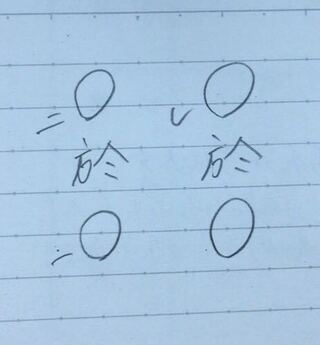 ○レ於○
○二於○一